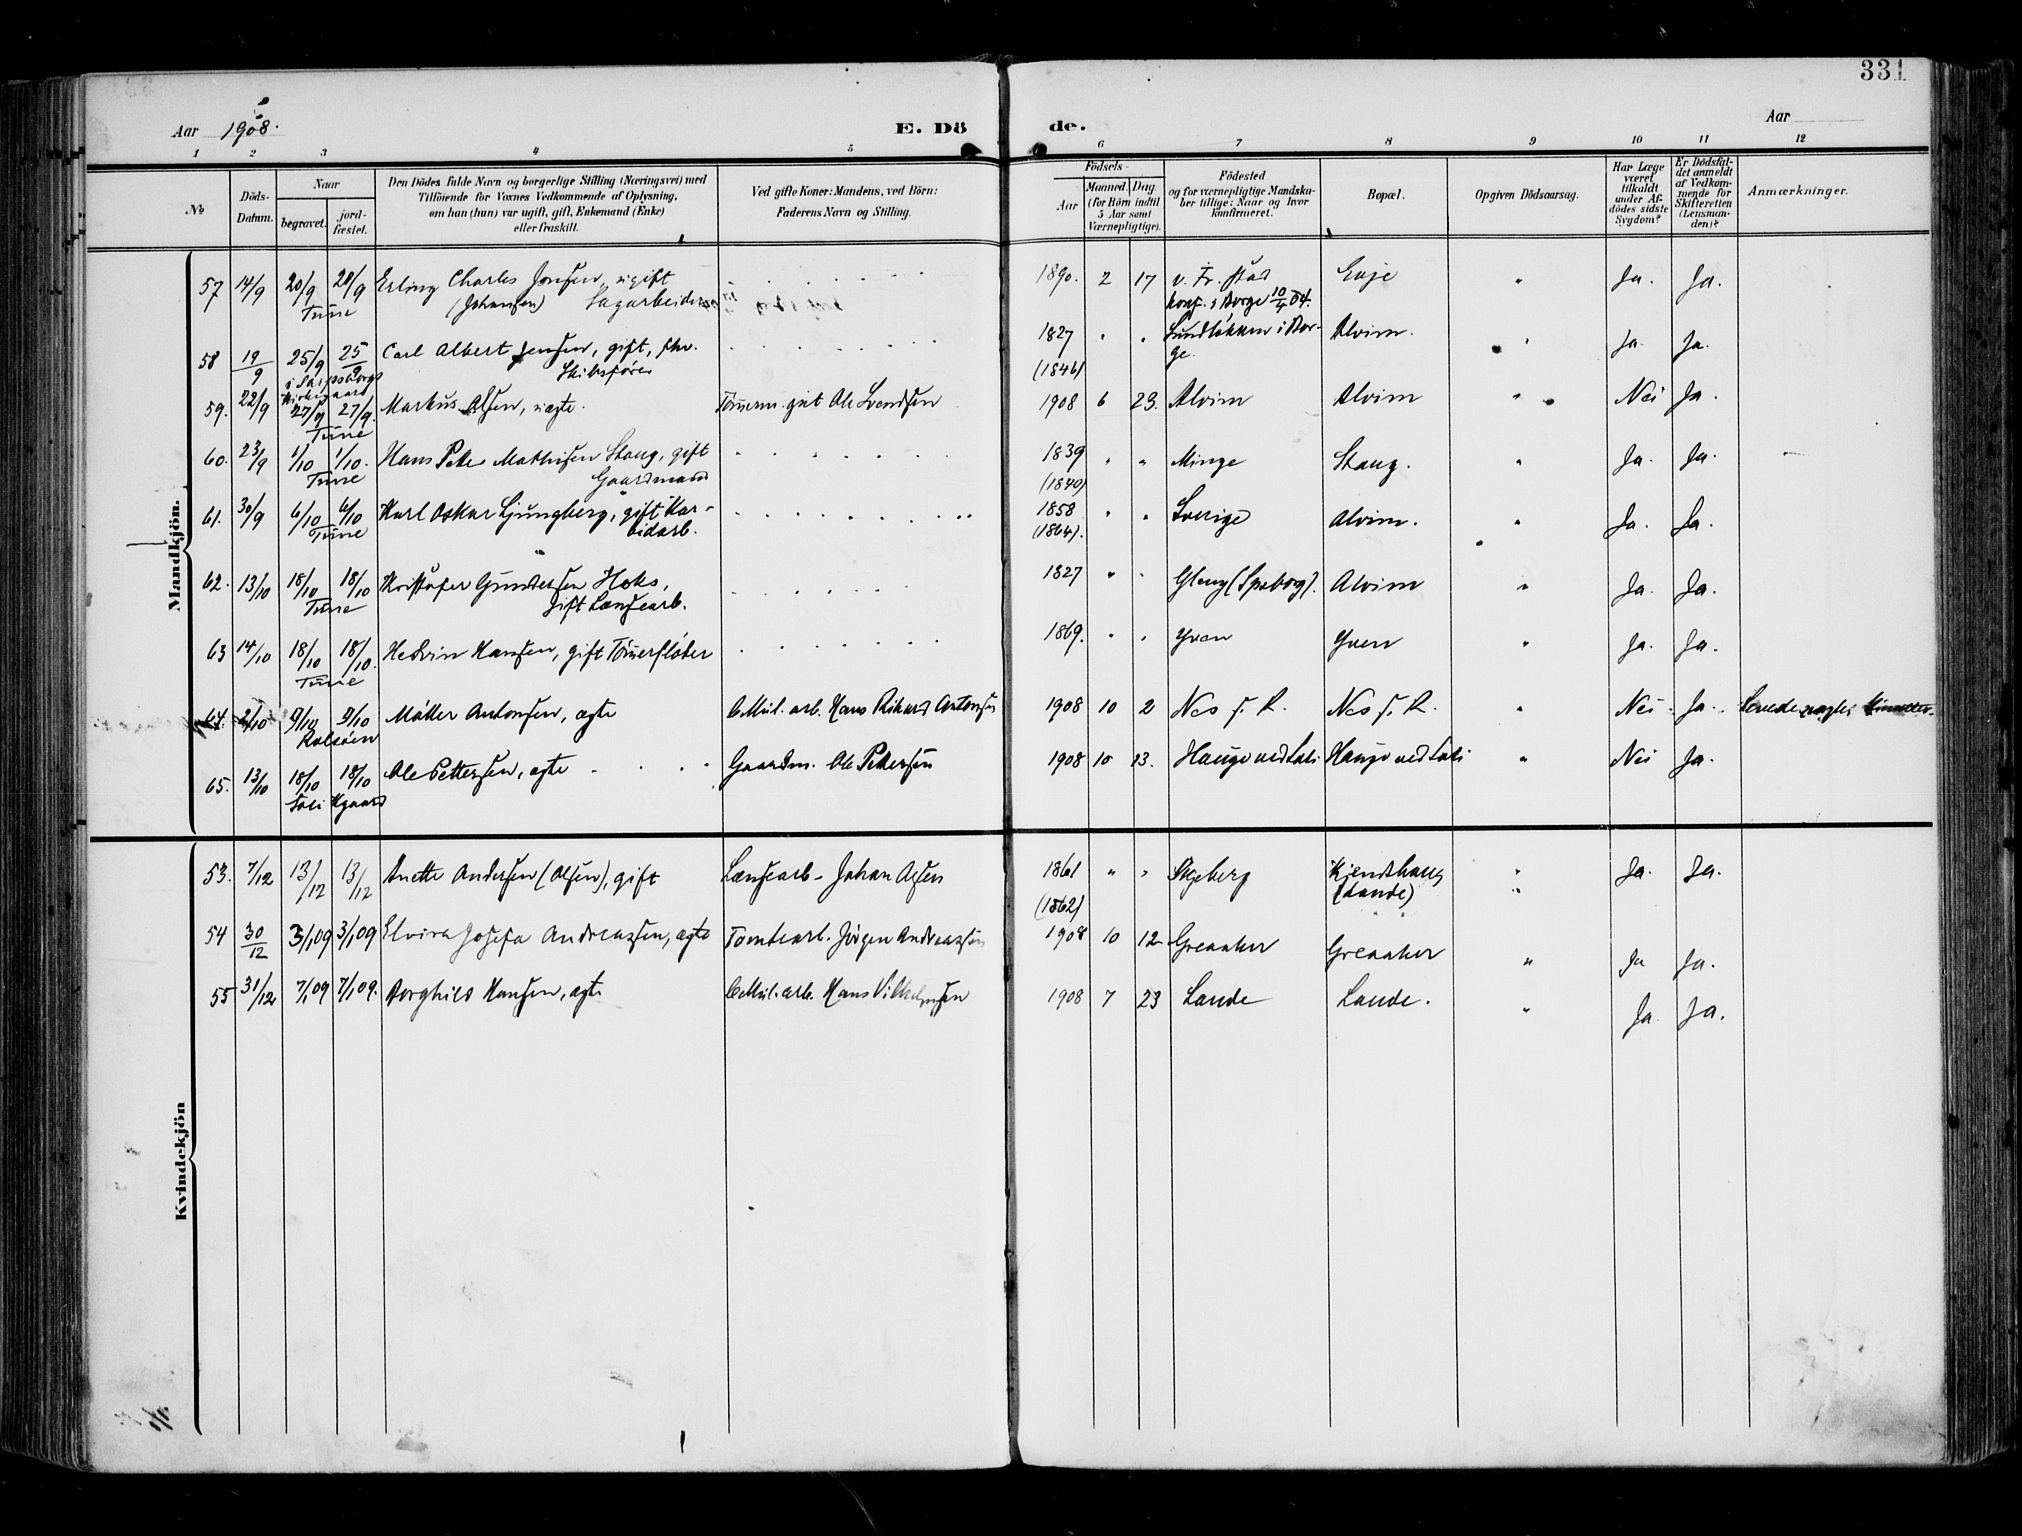 331
Aar 1908.
E. Dö
de.
Aar
1 2 3 4 5 6 7 8 9 10 11 12
No
Döds-Datum.
Naar
begravet.
jord-fæstet.
Den Dödes fulde Navn og borgerlige Stilling (Næringsvei) med
Tilföiende for Voxnes Vedkommende af Oplysning,
om han (hun) var ugift, gift, Enkemand (Enke)
eller fraskilt.
Ved gifte Koner: Mandens, ved Börn:
Faderens Navn og Stilling.
Födsels-
Aar
Maaned. Dag.
(for Börn indtil
5 Aar samt
Værnepligtige).
Födested
og for værnepligtige Mandska-
ber tillige: Naar og hvor
konfirmeret.
Bopæl.
Opgiven Dödsaarsag.
Har Læge
været
tilkaldt
under Af-
dödes sidste
Sygdom?
Er Dödsfal-
det anmeldt
af Vedkom-
mende for
Skifteretten
(Lensman-
den)?
Anmærkninger.
Mandkjön.
57 14/9 20/9 20/9 Erling Charles Jensen, ugift 1890. 2 17 v. Fr.stad Evje " Ja. Ja.
Tune (Johansen) Sagarbeider konf. i Borge 10/4 04.
58 19/9 25/9 25/9 Carl Albert Jensen, gift, fhv. 1827 " " i Bor- Alvim. " Ja. Ja.
i Sarpsborgs Skibsförer (1846) ge.
Kirkegaard
59. 22/9 27/9 27/9. Markus Olsen, uægte. Tömerm. gift Ole Svendsen 1908 6 23. Alvim Alvim " Nei Ja.
Tune
60. 23/9 1/10 1/10. Hans Peter Mathisen Stang, gift 1839 " " Minge Stang. " Ja. Ja.
Tune Gaardmand (1840)
61. 30/9 6/10 6/10 Karl Oskar Ljungberg, gift Kar- 1858 " " Sverige Alvim. " Ja. Ja.
Tune bidarb. (1864).
62. 13/10 18/10 18/10 Kristofer Gundersen Hoks, 1827 " " Gleng (Spsborg). Alvim " Ja. Ja.
Tune gift Løusearb.
63 14/10 18/10 18/10. Hedvin Hansen, gift Tömerfløter 1869. " " Yven Yven " Ja. Ja.
Tune
64. 2/10 9/10 9/10 Antonsen, ægte C Mül. arb. Hans Rikard Antonsen 1908 10 2 Nes f. R. Nes f. R. " Nei. Ja.
Rolsöen
65. 13/10 18/10 18/10 Ole Pettersen, ægte Gaardm. Ole Pettersen 1908 10 13. Hauge ved Soli Hauge ved Soli " Nei Ja.
Soli Kgaard
Kvindekjön
53. 7/12 13/12 13/12 Anette Andersen (Olsen), gift Løusearb. Johan Olsen 1861 " " Skjeberg Kjendshaug " Ja. Ja.
(1862) (Lande)
54 30/12 3/1 09 3/1 09 Elvira Josefa Andreassen, ægte Tomtearb. Jörgen Andreassen 1908 10 12 Greaaker Greaaker " Ja Ja.
55 31/12 7/1 09 7/1 09. Borghild Hansen, ægte C Mül. arb. Hans Vilhelmsen 1908 7 23 Lande Lande. " Ja. Ja.